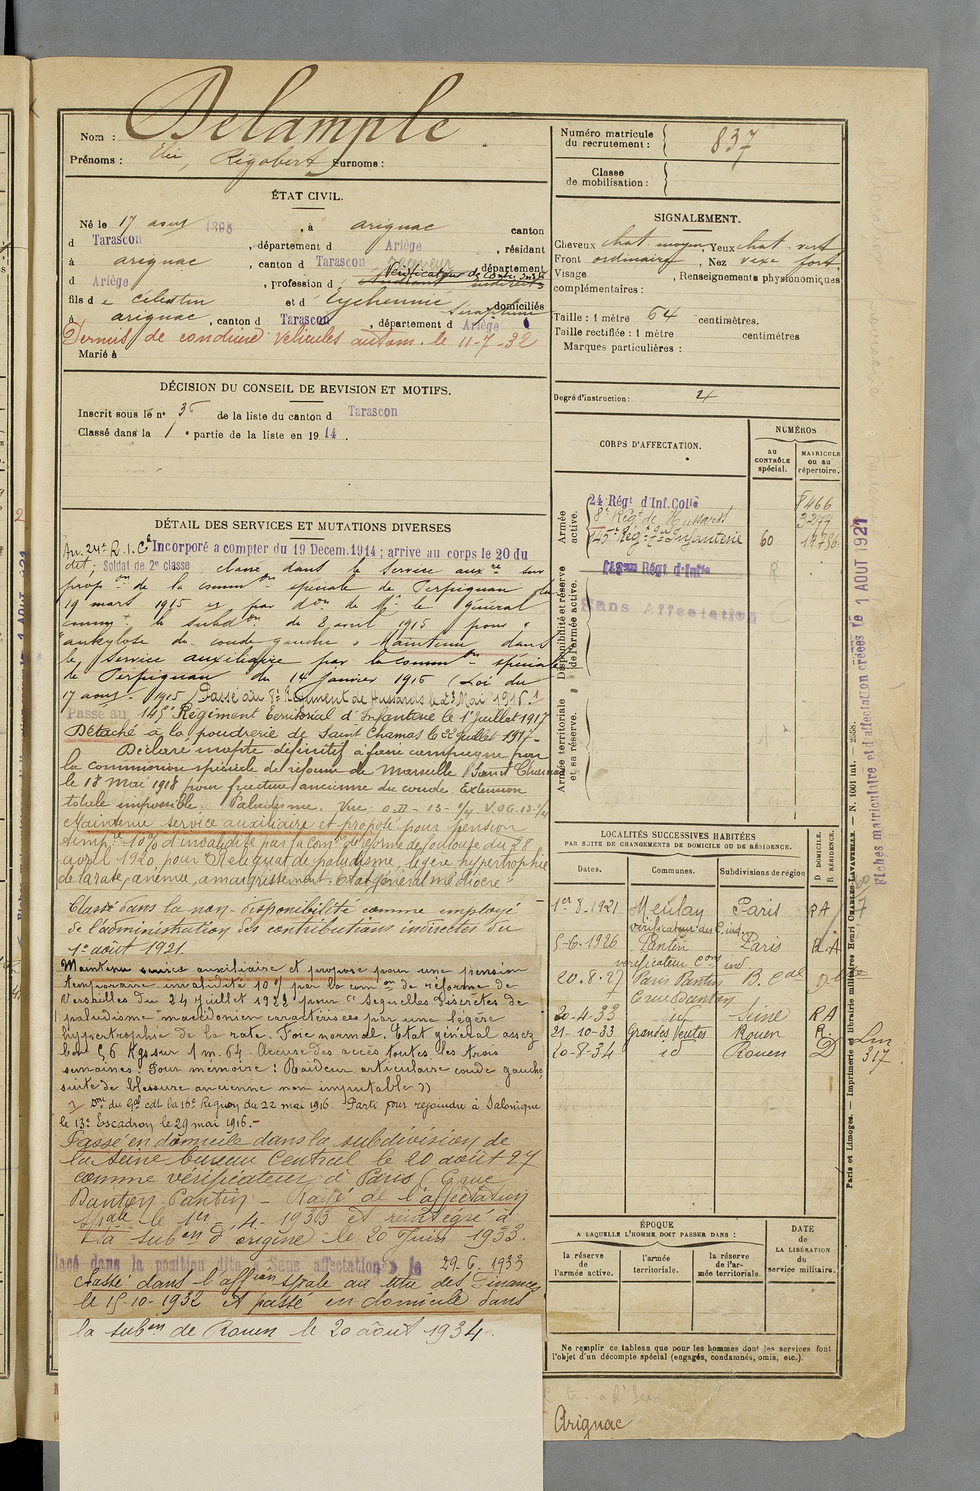 Nom : Delample
Prénoms : Elie, Rigobert Surnoms :
Numéro matricule du recrutement : 837
Classe de mobilisation :
ÉTAT CIVIL.
Né le 17 aout 1895, à arignac canton
d Tarascon, département d Ariège, résidant
à arignac, canton d Tarascon département
Receveur
Vérificateur de Contr. ind
d Ariège, profession d Etudiant indirectes
fils de Célestin et d domiciliés
à arignac, canton d Tarascon, département d Ariège
Permis de conduire véhicules autom. le 11-7-32
Marié à
SIGNALEMENT.
Cheveux chat. moyen Yeux chat. vert
Front ordinaire, Nez fort
Visage , Renseignements physionomiques
complémentaires :
Taille : 1 mètre 64 centimètres.
Taille rectifiée : 1 mètre centimètres
Marques particulières :
Degré d'instruction : 4
DÉCISION DU CONSEIL DE REVISION ET MOTIFS.
Inscrit sous le n° 36 de la liste du canton d Tarascon
Classé dans la 1e partie de la liste en 1914.
DÉTAIL DES SERVICES ET MUTATIONS DIVERSES
Au 24e R. I. Cal Incorporé a compter du 19 Decem. 1914 ; arrive au corps le 20 du
dit ; Soldat de 2e classe classé dans le Service auxre sur
propon de la common spéciale de Perpignan du
19 mars 1915 et par don de Mr le Général
commt la subdon de 8 avril 1915 pour "
ankylose du coude gauche » Maintenu dans
le service auxiliaire par la common spéciale
de Perpignan du 14 janvier 1916 (Loi du
17 aout 1915) Passé au 8e Régiment de Hussards le 23 Mai 1916. 1
Passé au 145e Régiment territorial d'Infanterie le 1er Juillet 1917
Détaché à la poudrerie de Saint Chamas le 22 Juillet 1917-
Déclaré inapte définitif à faire campagne par
la commission spéciale de réforme de Marseille (Saint Chamas)
le 18 Mai 1918 pour fracture ancienne du coude. Extension
totale impossible. Paludisme.
Maintenu service auxiliaire et proposé pour pension
tempre 10% d'invalidité par la comon de réforme de Toulouse du 28
avril 1920, pour Reliquat de paludisme, légère hypertrophie
de la rate, anémie, amaigrissement. Etat général médiocre.
Classé dans la non-disponibilité comme employé
de l'administration des contributions indirectes du
1er août 1921.
Maintenu service auxiliaire et proposé pour une pension
temporaire invalidité 10% par la comon de réforme de
Versailles du 24 juillet 1923 pour " Séquelles discrètes de
paludisme macédonien caractérisées par une légère
hypertrophie de la rate. Foie normal. Etat général assez
bon 56 Kgs sur 1 m. 64. Accuse des accès toutes les trois
semaines. Pour mémoire : Raideur articulaire coude gauche
suite de blessure ancienne non imputable »
1 Don du Gal cdt la 16e Région du 22 mai 1916. Parti pour rejoindre à Salonique
le 13e Escadron le 29 mai 1916.-
Passé en domicile dans la subdivision de
la Seine bureau Central le 20 août 27
comme vérificateur à Paris 6 rue
Danton Pantin - Rayé de l'affectation
spale le 1er . 4 - 1933 et réintégré à
la subon d'origine le 20 Juin 1933.
lacé dans la position dite « Sans affectation » le 29-6-1933
Classé dans l'affon spale au titre des Finances
le 15-10-1932 et passé en domicile dans
la subon de Rouen le 20 août 1934.
CORPS D'AFFECTATION.
NUMÉROS
au CONTRÔLE spécial.
MATRICULE ou au répertoire.
Armée active.
24 Régt d'Inf. Colle 8466
8e Regt de Hussards 3277
145e Régt d'Infanterie 60
Disponibilité et réserve de l'armée active.
Régt d'Infie
Sans Affectation
Armée territoriale et sa réserve.
LOCALITÉS SUCCESSIVES HABITÉES
PAR SUITE DE CHANGEMENTS DE DOMICILE OU DE RÉSIDENCE.
Dates. Communes. Subdivisions de région D DOMICILE. R RÉSIDENCE.
1er 8.1921 Meulan Paris RA
vérificateur des C. ind.
5-6.1926 Pantin Paris R.A
vérificateur Con ind
20.8.27 Paris Pantin B. Cal D
6 rue Danton
20-4-33 Seine RA
21-10-33 Grandes Ventes Rouen R.
20-8-34 id Rouen D
317
ÉPOQUE
A LAQUELLE L'HOMME DOIT PASSER DANS :
la réserve de l'armée active.
l'armée territoriale.
la réserve de l'armée territoriale.
DATE DE LA LIBÉRATION du service militaire.
Ne remplir ce tableau que pour les hommes dont les services font
l'objet d'un décompte spécial (engagés, condamnés, omis, etc.).
Arignac
Paris et Limoges. — Imprimerie et librairie militaires Henri CHARLES-LAVAUZELLE. — N. 1001 int. 2568.
Fiches matriculaire et d'affectation créées le 1 AOUT 1921